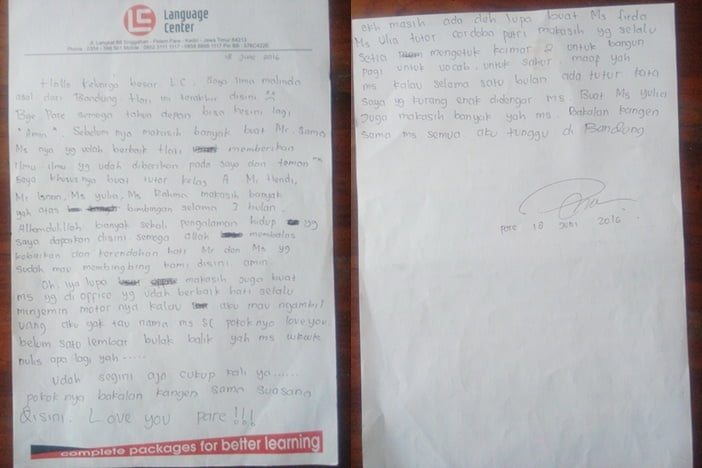 LC Language Center
Jl. Langkat 88 Singgahan - Pelem Pare - Kediri - Jawa Timur 64213
18 Juni 2016
Hallo keluarga besar LC. Saya ima malinda
asal dari Bandung Hari ini terakhir disini
Bye Pare semoga tahun depan bisa kesini lagi
"Amin". Sebelum nya makasih banyak buat Mr. sama
Ms nya yg udah berbaik Hati memberikan
ilmu ilmu yg udah diberikan pada saya dan teman"
Saya khususnya buat tutor kelas A M. Hendi,
Mr Isnan, Ms Yulia, Ms Rahma makasih banyak
yah atas bimbingan selama 3 bulan.
Alhamdulillah banyak sekali pengalaman hidup yg
saya dapatkan disini semoga allah membalas
kebaikan dan kerendahan hati Mr dan Ms yg
sudah mau membingbing kami disini amin.
Oh, iya lupa makasih juga buat
ms yg di office yg udah berbaik hati selalu
minjemin motor nya kalau aku mau ngambil
uang aku gak tau nama ms si pokok nya love you.
belum satu lembar bulak balik yah ms wkwk
nulis apa lagi yah .....
Udah segini aja cukup kali ya......
pokok nya bakalan kangen sama suasana
disini. Love you pare!!!
complete packages for better learning
ekh masih ada deh lupa buat Ms firda
Ms Ulia tutor cordoba putri makasih yg selalu
setia mengetuk kamar 2 untuk bangun
pagi untuk vocab, untuk sahur. maap yah
ms kalau selama satu bulan ada tutur kata
saya yg kurang enak didengar ms. Buat Ms Yulia
juga makasih banyak yah ms. Bakalan kangen
sama ms semua aku tunggu di Bandung
pare 18 Juni 2016